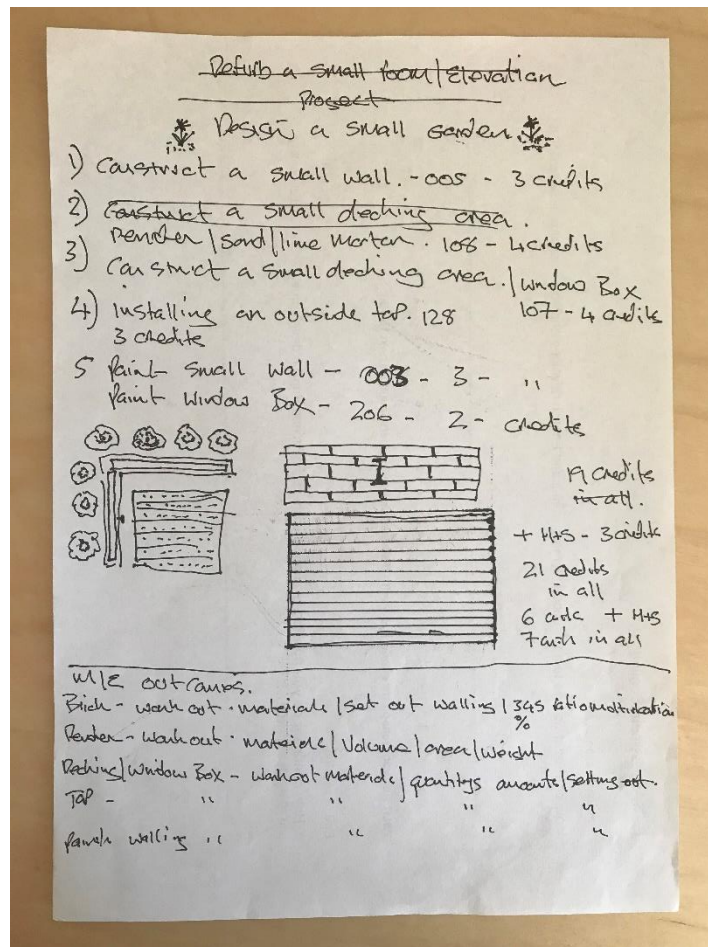 Refurb a small room/Elevation
Project
Design a small Garden
1) Construct a small wall. - 005 - 3 credits
2) Construct a small decking area.
3) Render/sand/lime mortar. 108 - 4 credits
Construct a small decking area./window Box
107 - 4 credits
4) installing an outside tap. 128
3 credits
5 Paint small wall - 003 - 3 - "
Paint window Box - 206 - 2 - credits
19 credits
in all.
+ H+S - 3 credits
21 credits
in all
6 + H+S
7 in all
M/E outcomes.
Brick - work out materials/set out walling/345 ratio
%
Render - work out materials/Volume/area/weight
Decking/Window Box - work out materials/quantitys amounts/setting out.
Tap - " " " "
walling " " " "